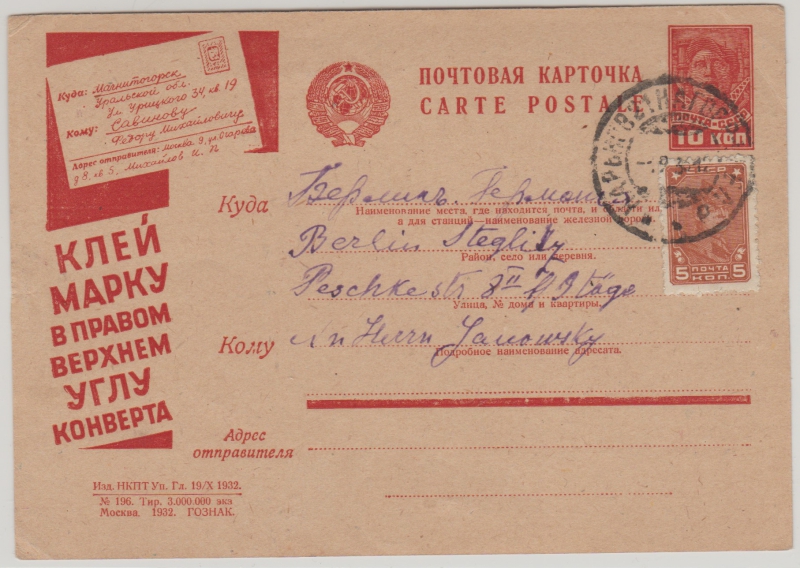 Куда: Магнитогорск
Уральской обл.
Ул Урицкого 34, кв 19
Кому: Савинову
Федору Михайловичу
Адрес отправителя: Москва 9, ул Огарева
д 8, кв 5, Михайлов И. П
КЛЕЙ
МАРКУ
В ПРАВОМ
ВЕРХНЕМ
УГЛУ
КОНВЕРТА
Изд. НКПТ Уп. Гл. 19/X 1932.
№ 196. Тир. 3.000.000 экз
Москва. 1932. ГОЗНАК.
ПОЧТОВАЯ КАРТОЧКА
CARTE POSTALE
ПОЧТА СССР
10 КОП
5 ПОЧТА 5
КОП.
Куда
Берлин. Германия
Наименование места, где находится почта, и области или
а для станций—наименование железной дороги
Berlin Steglitz
Район, село или деревня.
Peschkestr 8 II
Улица, № дома и квартиры.
Кому
An Herrn Janowsky
Подробное наименование адресата.
Адрес
отправителя